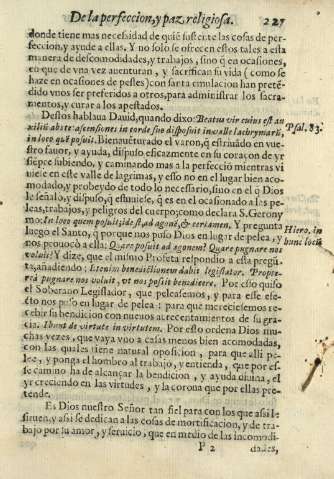 De la perfeccion, y paz religiosa. 227
donde tiene mas necesidad de quiē sustēte las cosas de per-
feccion, y ayude a ellas. Y no solo se ofrecen estos tales a esta
manera de descomodidades, y trabajos, sino q̄ en ocasiones,
en que de vna vez auenturan, y sacrifican su vida (como se
haze en ocasiones de pestes) con santa emulacion han preten-
dido vnos ser preferidos a otros, para administrar los sacra-
mentos, y curar a los apestados.
Destos hablaua Dauid, quando dixo: Beatus vir cuius est au
xiliū abs te: ascensiones in corde suo disposuit in valle lachrymarū, Psal. 83.
in loco quē posuit. Bienauēturado el varon, q̄ estriuādo en vue-
stro fauor, y ayuda, dispuso eficazmente en su coraçon de yr
siēpre subiendo, y caminando mas a la perfecciō mientras vi
uiesse en este valle de lagrimas, y esto no en el lugar bien aco-
modado, y probeydo de todo lo necessario, sino en el q̄ Dios
le señalo, y dispuso, q̄ estuuiesse, q̄ es en el ocasionado a las pe-
leas, trabajos, y peligros del cuerpo; como declara S. Gerony
mo: In loco quem posuit, id est, ad agonē, & certamen. Y pregunta Hiero. in
luego el Santo, q̄ por que nos puso Dios en lugar de pelea, y hunc locū
nos prouocò a ella: Quare posuit ad agonem? Quare pugnare nos
voluit? Y dize, que el mismo Profeta respondio a esta pregū-
ta, añadiendo: Etenim benedictionem dabit legislator. Propte-
rea pugnare nos voluit, vt nos possit benedicere. Por esso quiso
el Soberano Legislador, que peleassemos, y para esse efe-
cto nos puso en lugar de pelea: para que mereciessemos re-
cebir su bendicion con nueuos acrecentamientos de su gra-
cia. Ibunt de virtute in virtutem. Por esto ordena Dios mu-
chas vezes, que vaya vno a casas menos bien acomodadas,
con las quales tiene natural oposicion, para que alli pe-
lee, y ponga el hombro al trabajo, y entienda, que por es-
se camino ha de alcançar la bendicion, y ayuda diuina, el
yr creciendo en las virtudes, y la corona que por ellas pre-
tende.
Es Dios nuestro Señor tan fiel para con los que assi le
siruen, y assi se dedican a las cosas de mortificacion, y de tra-
bajo por su amor, y seruicio, que en medio de las incomodi-
P 2 dades,